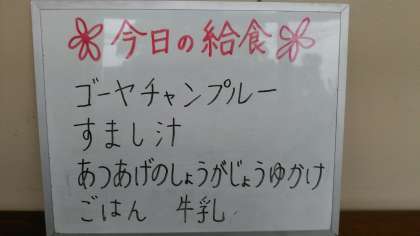 今日の給食
ゴーヤチャンプルー
すまし汁
あつあげのしょうがじょうゆかけ
ごはん 牛乳